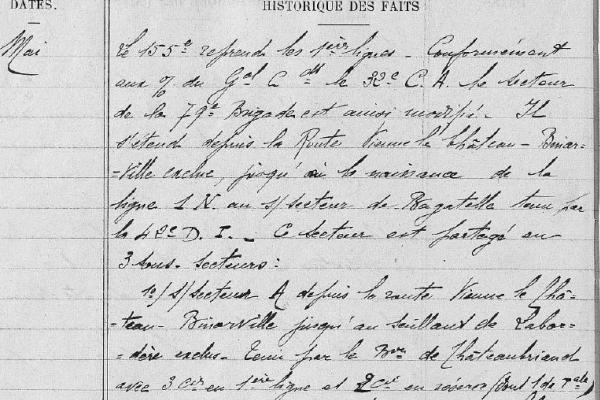 DATES.
HISTORIQUE DES FAITS
Mai
Le 155e reprend les 1ères lignes - Conformément
aux O/ du Gal Ct le 32e C. A. le secteur
de la 79e Brigade est ainsi modifié. Il
s'étend depuis la Route Vienne le Château - Binar-
-ville exclue, jusqu'où la naissance de la
ligne 1 N. au s/secteur de Bagatelle tenu par
la 42e D. I. - Ce secteur est partagé en
3 sous-secteurs :
1º/ s/secteur A depuis la route Vienne le Châ-
-teau - Binarville jusqu'au saillant de Labor-
-dère exclus. Tenu par le Bon de Châteaubriand
avec 3 Cies en 1ère ligne et 2 Cies en réserve (dont 1 de